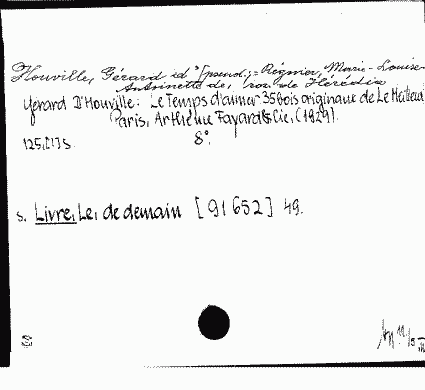 Houville, Gérard d' [pseud.; = Régnier, Marie-Louise-
Antoinette de, roz. de Hérédia
Gérard D'Houville: Le Temps d'aimer. 35 bois originaux de Le Meilleur
Paris, Arthème Fayard & Cie, (1929).
125, [1] S. 8°
s. Livre, Le, de demain [91652] 49.